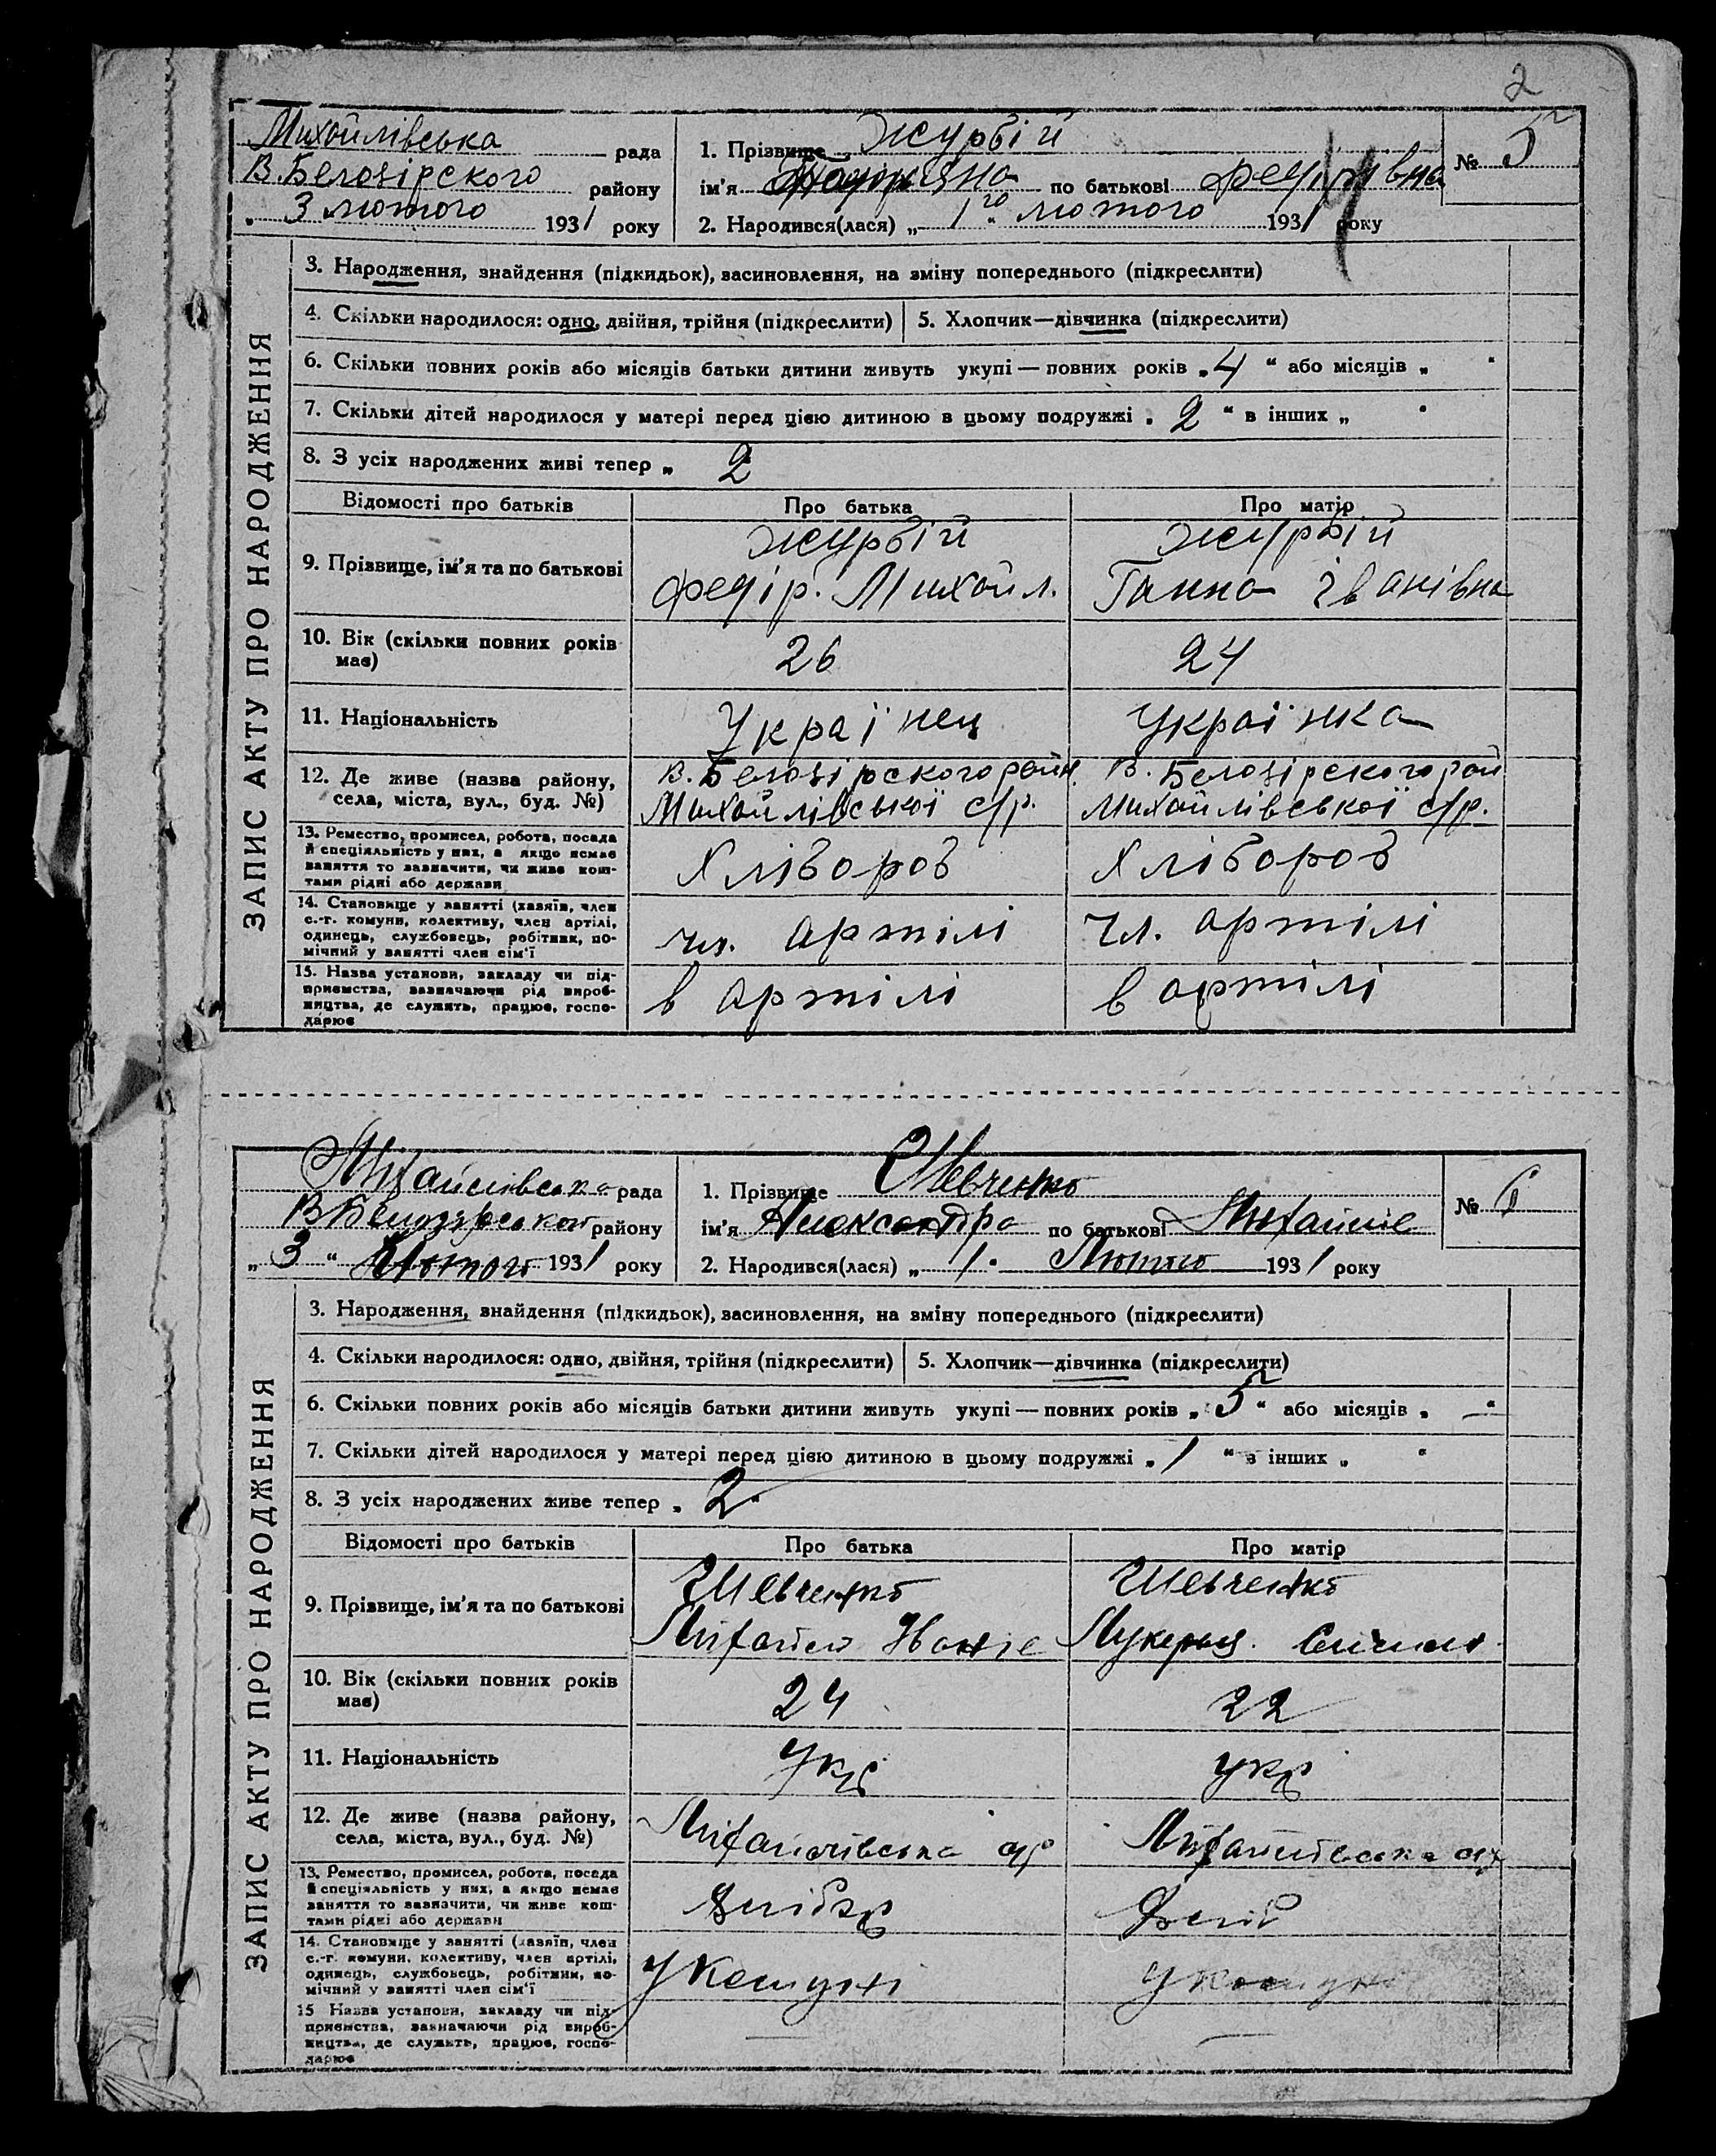 2
Михойлівська рада
В. Белозірского району
„ 3 лютого 1931 року
1. Прізвище Журбій
ім'я по батькові Федірівна
2. Народився(лася) „ 1го " лютого 1931 року
№ 5
ЗАПИС АКТУ ПРО НАРОДЖЕННЯ
3. Народження, знайдення (підкидьок), засиновлення, на зміну попереднього (підкреслити)
4. Скільки народилося: одно, двійня, трійня (підкреслити) 5. Хлопчик—дівчинка (підкреслити)
6. Скільки повних років або місяців батьки дитини живуть укупі — повних років „ 4 " або місяців „ "
7. Скільки дітей народилося у матері перед цією дитиною в цьому подружжі „ 2 " в інших „ "
8. З усіх народжених живі тепер „ 2
Відомості про батьків Про батька Про матір
9. Прізвище, ім'я та по батькові
Журбій
Федір. Михойл.
Журбій
Ганна Іванівна
10. Вік (скільки повних років
має)
26 24
11. Національність Українец Українка
12. Де живе (назва району,
села, міста, вул., буд. №)
В. Белозірского район.
Михойлівської с/р.
В. Белозірского рай
Михойлівської с/р.
13. Ремество, промисел, робота, посада
й спеціяльність у них, а якщо немає
заняття то зазначити, чи живе кош-
тами рідні або держави
Хліборов Хліборов
14. Становище у занятті (хазяїн, член
с.-г. комуни, колективу, член артілі,
одинець, службовець, робітник, по-
мічний у занятті член сім'ї
чл. артілі чл. артілі
15. Назва установи, закладу чи під-
приємства, зазначаючи рід вироб-
ництва, де служить, працює, госпо-
дарює
в артілі в артілі
Міхайлівська рада
району
„ 3 " Лютого 1931 року
1. Прізвище Шевченко
ім'я Александра по батькові Міхайлів
2. Народився(лася) „ 1 " Лютого 1931 року
№ 6
ЗАПИС АКТУ ПРО НАРОДЖЕННЯ
3. Народження, знайдення (підкидьок), засиновлення, на зміну попереднього (підкреслити)
4. Скільки народилося: одно, двійня, трійня (підкреслити) 5. Хлопчик—дівчинка (підкреслити)
6. Скільки повних років або місяців батьки дитини живуть укупі — повних років „ 5 " або місяців „ — "
7. Скільки дітей народилося у матері перед цією дитиною в цьому подружжі „ 1 " в інших „ "
8. З усіх народжених живе тепер „ 2 "
Відомості про батьків Про батька Про матір
9. Прізвище, ім'я та по батькові
Шевченко
Міхайло Іванів
Шевченко
Лукерья
10. Вік (скільки повних років
має)
24 22
11. Національність Укр Укр
12. Де живе (назва району,
села, міста, вул., буд. №)
Міхайлівська с/р Міхайлівська с/р
13. Ремество, промисел, робота, посада
й спеціяльність у них, а якщо немає
заняття то зазначити, чи живе кош-
тами рідні або держави
Хлібор Хліб
14. Становище у занятті (хазяїн, член
с.-г. комуни, колективу, член артілі,
одинець, службовець, робітник, по-
мічний у занятті член сім'ї
У Комуні У Комуні
15 Назва установи, закладу чи під-
приємства, зазначаючи рід вироб-
ництва, де служить, працює, госпо-
дарює
— —